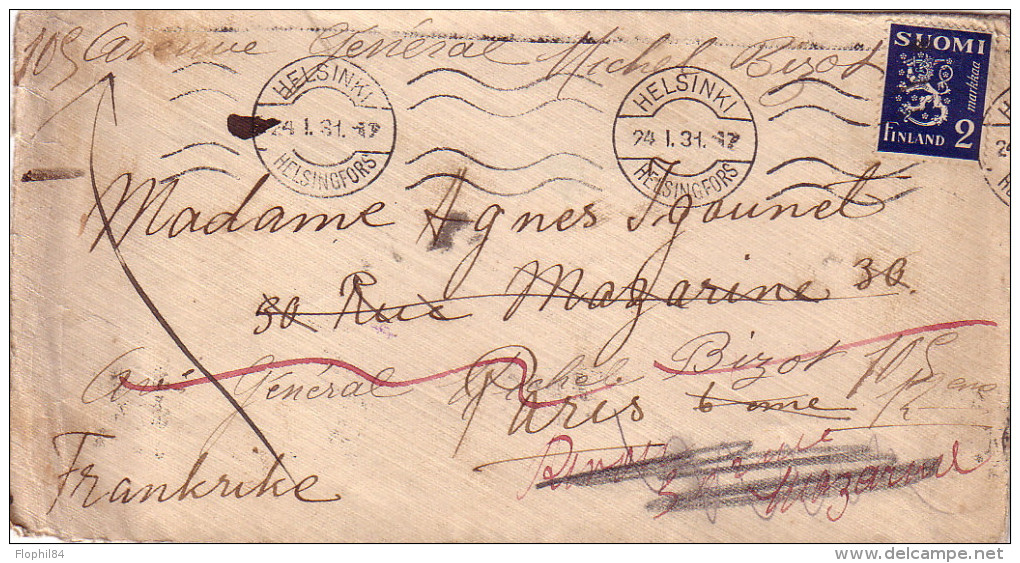 109 avenue Général Michel Bizot
SUOMI
markkaa
FINLAND 2
HELSINKI
24 I.31.-17
HELSINGFORS
HELSINKI
24 I.31.-17
HELSINGFORS
Madame Agnes Igounet
30 Rue Mazarine 30.
Général Michel Bizot
Paris 6 eme
Frankrike
30 Mazarine
Flophil84
delcampe.net